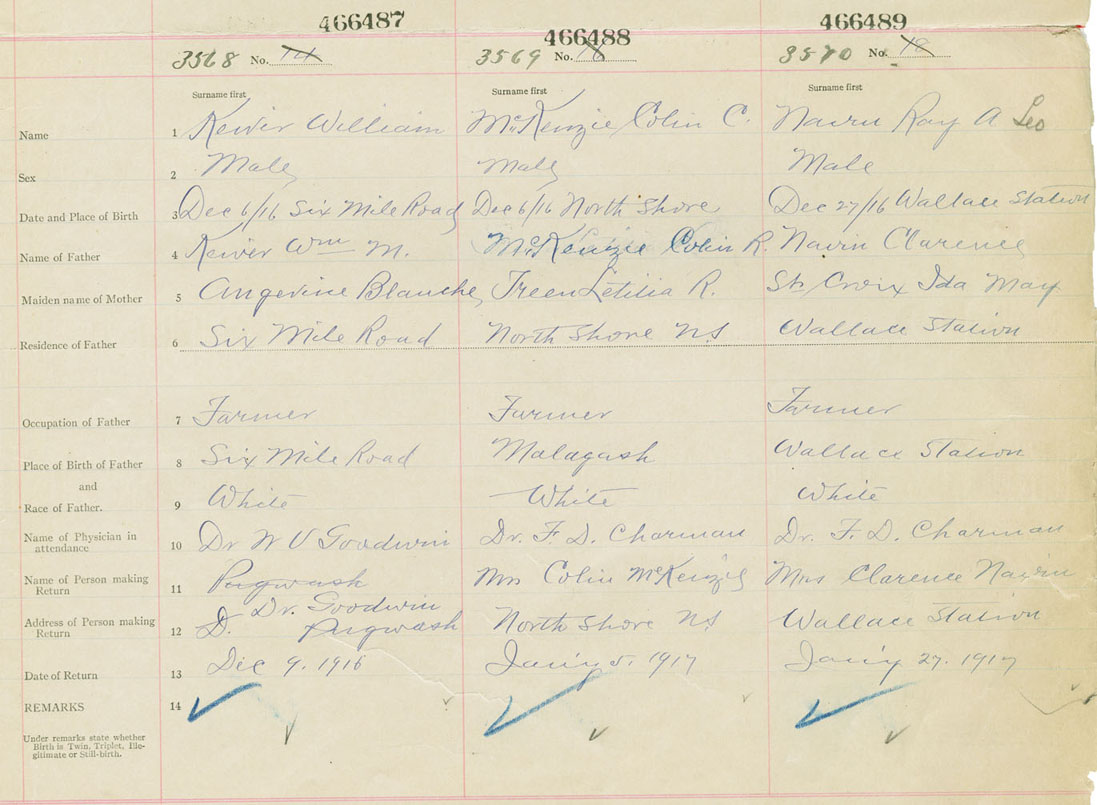 466487 466488 466489
3568 No. 14 3569 No. 3570 No. 18
Surname first Surname first Surname first
Name 1 Keiver William McKenzie Colin C. Ray A Leo
Sex 2 Male Male Male
Date and Place of Birth 3 Dec 6/16 Six Mile Road Dec 6/16 North Shore Dec 27/16 Wallace Station
Name of Father 4 Keiver Wm M. McKenzie Colin R. Navin Clarence
Maiden name of Mother 5 Angevine Blanche Treen Letitia R. St Croix Ida May
Residence of Father 6 Six Mile Road North Shore NS Wallace Station
Occupation of Father 7 Farmer Farmer Farmer
Place of Birth of Father 8 Six Mile Road Malagash Wallace Station
and
Race of Father. 9 White White White
Name of Physician in
attendance 10 Dr W V Goodwin Dr. F. D. Charman Dr. F. D. Charman
Name of Person making
Return 11 Pugwash Mrs Colin McKenzie Mrs Clarence Navin
Dr. Goodwin
Address of Person making
Return 12 D. Pugwash North Shore NS Wallace Station
Date of Return 13 Dec 9. 1916 Jan'y 5. 1917 Jan'y 27. 1917
REMARKS 14
Under remarks state whether
Birth is Twin, Triplet, Ille-
gitimate or Still-birth.